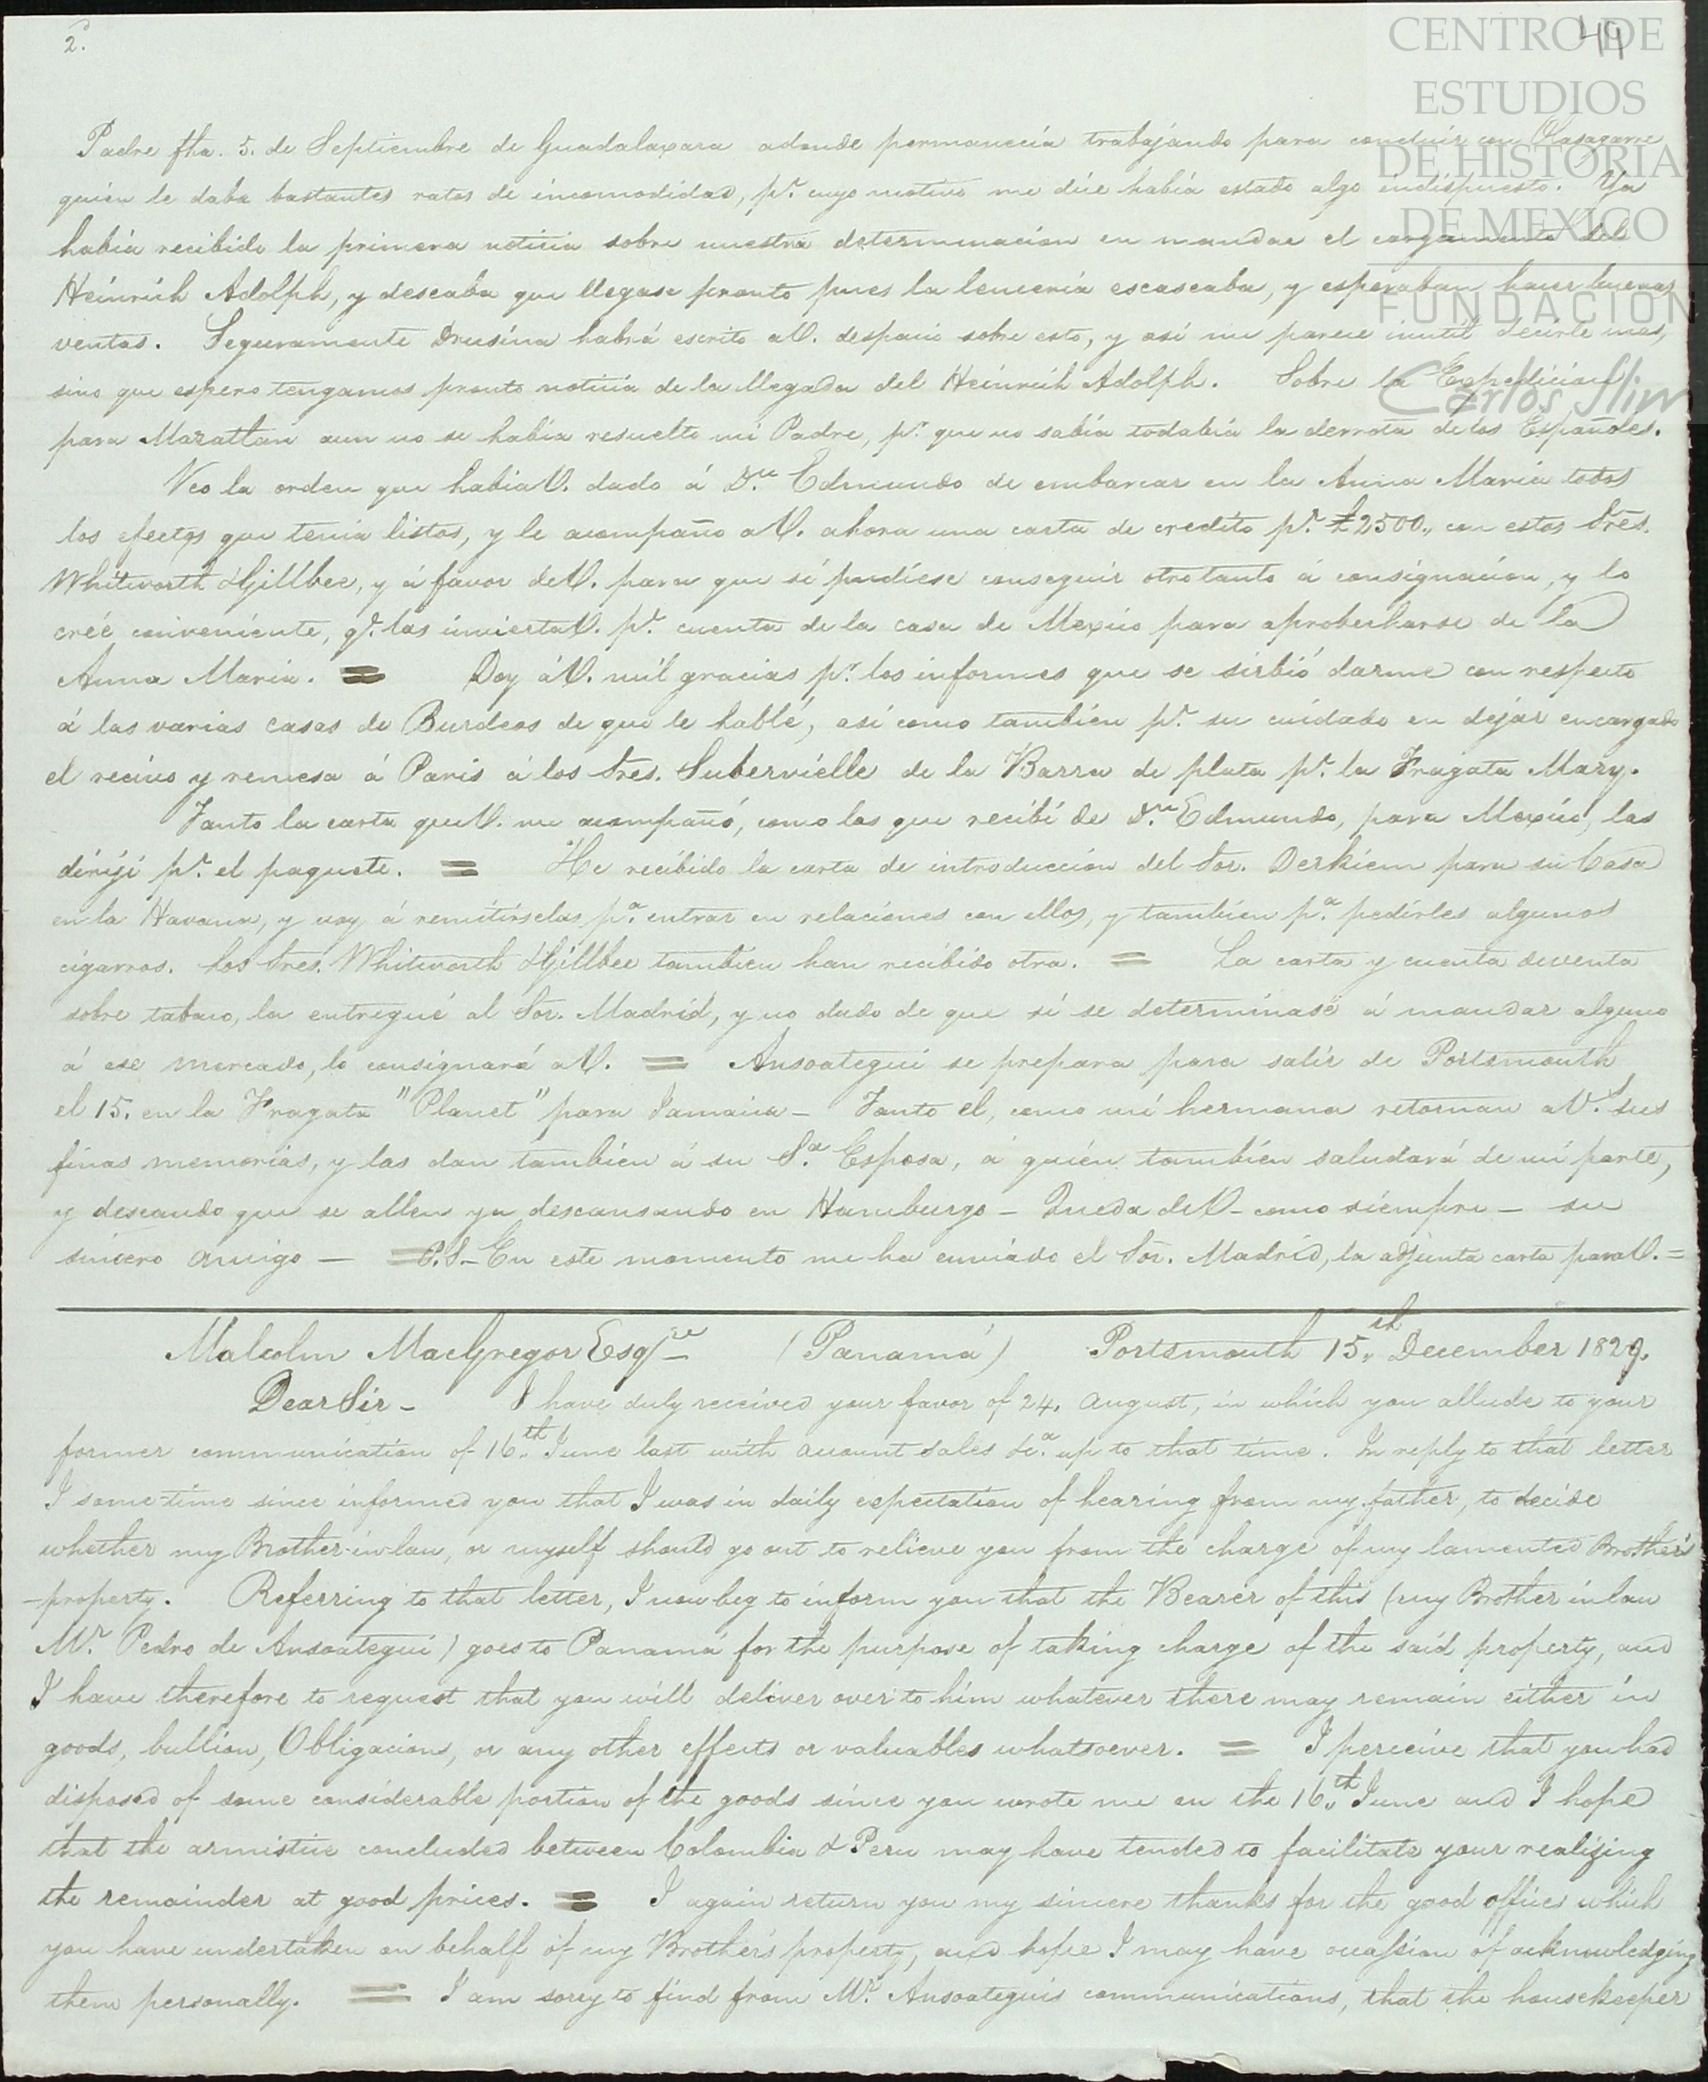 2º.
49
CENTRO DE
ESTUDIOS
DE HISTORIA
DE MEXICO
FUNDACION
Carlos Slim
Padre fha. 5. de Septiembre de Guadalaxara adonde permanecía trabajando para concluir con Olasagarre
quien le daba bastantes ratos de incomodidad, pr. cuyo motivo me dice había estado algo indispuesto. Ya
había recibido la primera noticia sobre nuestra determinacion en mandar el cargamento del
Heinrich Adolph, y deseaba que llegase pronto pues la lencería escaseaba, y esperaban hacer buenas
ventas. Seguramente Drusina habrá escrito a V. despacio sobre esto, y así me parece inutil decirle mas,
sino que espero tengamos pronto noticia de la llegada del Heinrich Adolph. Sobre la Expedicion
para Mazatlan aun no se había resuelto mi Padre, pr. que no sabía todabía la derrota de los Españoles.
Veo la orden que había V. dado á Dn. Edmundo de embarcar en la Anna Maria todos
los efectos que tenia listos, y le acompaño a V. ahora una carta de credito pr. £2500,, con estos Sres.
Whitworth & Gillbee, y á favor de V. para que si pudiese conseguir otro tanto á consignacion, y lo
créé conveniente, qe. las invierta V. pr. cuenta de la casa de Mexico para aprobecharse de la
Anna Maria. = Doy á V. mil gracias pr. los informes que se sirbió darme con respecto
á las varias casas de Burdeos de que le hablé, así como tambien pr. su cuidado en dejar encargado
el recivo y remesa á Paris á los Sres. Subervielle de la Barra de plata pr. la Fragata Mary.
Tanto la carta que V. me acompañó, como las que recibí de Dn. Edmundo, para Mexico, las
dirijí pr. el paquete. = He recibido la carta de introduccion del Sor. Derkiem para su Casa
en la Havana, y voy á remitirselas pa. entrar en relaciones con ellos, y tambien pa. pedirles algunos
cigarros. Los Sres. Whitworth & Gillbee tambien han recibido otra. = La carta y cuenta de venta
sobre tabaco, la entregué al Sor. Madrid, y no dudo de que si se determinase á mandar alguno
á ese mercado, lo consignará a V. = Ansoategui se prepara para salir de Portsmouth
el 15. en la Fragata "Planet" para Jamaica - Tanto el, como mi hermana retornan a Vs. sus
finas memorias, y las dan tambien á su Sa. Esposa, á quien tambien saludará de mi parte,
y deseando que se allen ya descansando en Hamburgo - Queda de V - como siempre - su
sincero amigo - = P.S. - En este momento me ha enviado el Sor. Madrid, la adjunta carta para V. =
Malcolm MacGregor Esqre (Panamá) Portsmouth 15,,th December 1829.
Dear Sir - I have duly received your favor of 24. August, in which you allude to your
former communication of 16,,th June last with account Sales &ca. up to that time. In reply to that letter
I some time since informed you that I was in daily expectation of hearing from my father, to decide
whether my Brother-in-law, or myself should go out to relieve you from the charge of my lamented Brother's
-property. Referring to that letter, I now beg to inform you that the Bearer of this (my Brother in law
Mr. Pedro de Ansoategui) goes to Panamá for the purpose of taking charge of the said property, and
I have therefore to request that you will deliver over to him whatever there may remain either in
goods, bullion, Obligacions, or any other effects or valuables whatsoever. = I perceive that you had
disposed of some considerable portion of the goods since you wrote me on the 16,,th June and I hope
that the armistice concluded between Colombia & Peru may have tended to facilitate your realizing
the remainder at good prices. = I again return you my sincere thanks for the good offices which
you have undertaken on behalf of my Brother's property, and hope I may have occassion of acknowledging
them personally. = I am sorry to find from Mr. Ansoategui's communications, that the housekeeper